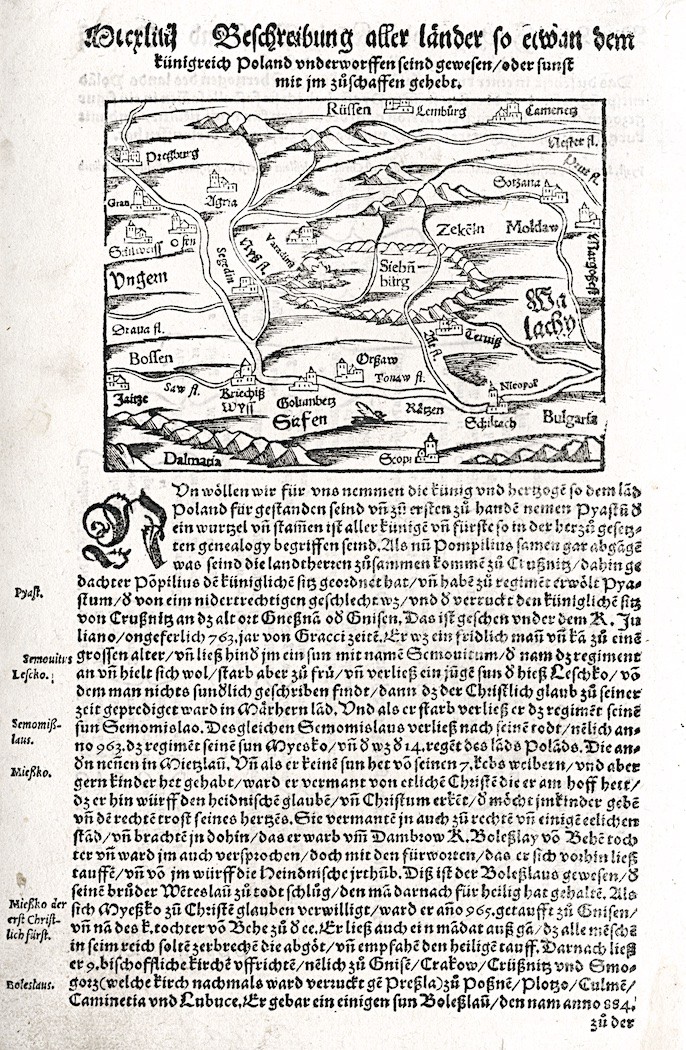 Mcxliiij Beschreibung aller länder so etwan dem
künigreich Poland vnderworffen seind gewesen/oder sunst
mit jm zůschaffen gehebt.
Rüssen Lemburg Camenetz
Nester fl.
Prut fl.
Preßburg
Gran Agria
Sotzana
Ofen
Zekeln Moldaw
Segedin Tyssa fl. Varadin
Siebñ-
bürg
Vngern
Walachy
Draua fl.
Alt fl. Teruiß
Bossen
Orßaw
Tonaw fl.
Jaitze Saw fl. Kriechiß
Wyss Golumbetz
Nicopol
Sirfen Rätzen Schiltach Bulgaria
Dalmatia Scopi
NVn wöllen wir für vns nemmen die künig vnd hertzogē so dem lād
Poland für gestanden seind vñ zů ersten zů handē nemen Pyastū ď
ein wurtzel vñ stam̄en ist aller künigē vñ fürstē so in der herzů gesetz-
ten genealogy begriffen seind. Als nū Pompilius samen gar abgāgē
was seind die landtherren zůsammen kommē zů Crußnitz/dahin ge
dachter Pōpilius dē küniglichē sitz geordnet hat/vñ habē zů regimēt erwölt Pya-
stum/ď von eim nidertrechtigen geschlecht wz/vnd ď verruckt den küniglichē sitz
von Crußnitz an dz alt ort Gneßnā oď Gnisen. Das ist geschen vnder dem K. Ju
liano/ongeferlich 763. jar von Gracci zeitē. Er wz ein fridlich mañ vñ kā zů einē
grossen alter/vñ ließ hinď jm ein sun mit namē Semouitum/ď nam dz regiment
an vñ hielt sich wol/starb aber zů frů/vñ verließ ein jūgē sun ď hieß Leschko/vō
dem man nichts sunďlich geschriben findt/dann dz der Christlich glaub zů seiner
zeit geprediget ward in Märhern lād. Vnd als er starb verließ er dz regimēt seinē
sun Semomislao. Desgleichen Semomislaus verließ nach seinē todt/nēlich an-
no 963. dz regimēt seinē sun Myesko/vñ ď wz ď 14. regēt des lāds Polāds. Die an-
ďn neñen in Mietzlaū. Vñ als er keinē sun het vō seinen 7. kebs weibern/vnd aber
gern kinder het gehabt/ward er vermant von etlichē Christē die er am hoff hett/
dz er hin würff den heidnischē glaubē/vñ Christum erkēt/ď möcht jm kinder gebē
vñ dē rechtē trost seines hertzēs. Sie vermantē jn auch zů rechtē vñ einigē eelichen
stād/vñ brachtē jn dohin/das er warb vm̄ Dambrow K. Boleßlay vō Behē toch
ter vñ ward jm auch versprochen/doch mit den fürworten/das er sich vorhin ließ
tauffē/vñ vō jm würff die Heindnische jrthūb. Diß ist der Boleßlaus gewesen/ď
seinē brůder Wēteslaū zů todt schlůg/den mā darnach für heilig hat gehaltē. Als
sich Myeßko zů Christē glauben verwilligt/ward er año 965. getaufft zů Gnisen/
vñ nā des k. tochter vō Behe zů ď ee. Er ließ auch ein mādat auß gā/dz alle mēschē
in seim reich soltē zerbrechē die abgöt/vñ empfahē den heiligē tauff. Darnach ließ
er 9. bischoffliche kirchē vffrichtē/nēlich zů Gnisē/Crakow/Crüßnitz vnd Smo-
gorz(welche kirch nachmals ward verruckt gē Preßla)zů Poßnē/Plotzo/Culmē/
Caminetia vnd Lubuce. Er gebar ein einigen sun Boleßlaū/den nam anno 884.
zů der
Pyast.
Semouitus
Leßcko.
Semomiß-
laus.
Mießko.
Mießko der
erst Christ-
lich fürst.
Boleslaus.